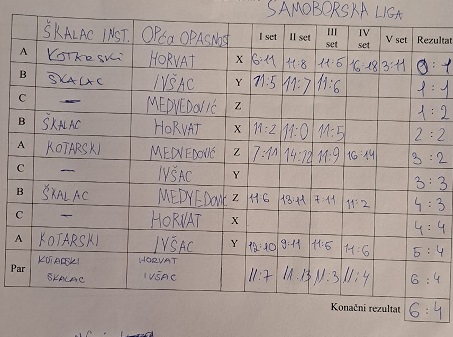 SAMOBORSKA LIGA
ŠKALAC INST. OPĆA OPASNOST I set II set III set IV set V set Rezultat
A KOTARSKI HORVAT X 6:11 11:8 11:5 16:18 3:11 0:1
B ŠKALAC IVŠAC Y 11:5 11:7 11:6 1:1
C – MEDVEDOVIĆ Z 1:2
B ŠKALAC HORVAT X 11:2 11:0 11:5 2:2
A KOTARSKI MEDVEDOVIĆ Z 7:11 14:12 11:9 16:14 3:2
C – IVŠAC Y 3:3
B ŠKALAC MEDVEDOVIĆ Z 11:6 13:11 7:11 11:2 4:3
C – HORVAT X 4:4
A KOTARSKI IVŠAC Y 12:10 9:11 11:5 11:6 5:4
Par KOTARSKI HORVAT
ŠKALAC IVŠAC 11:7 11:13 11:3 11:4 6:4
Konačni rezultat 6:4